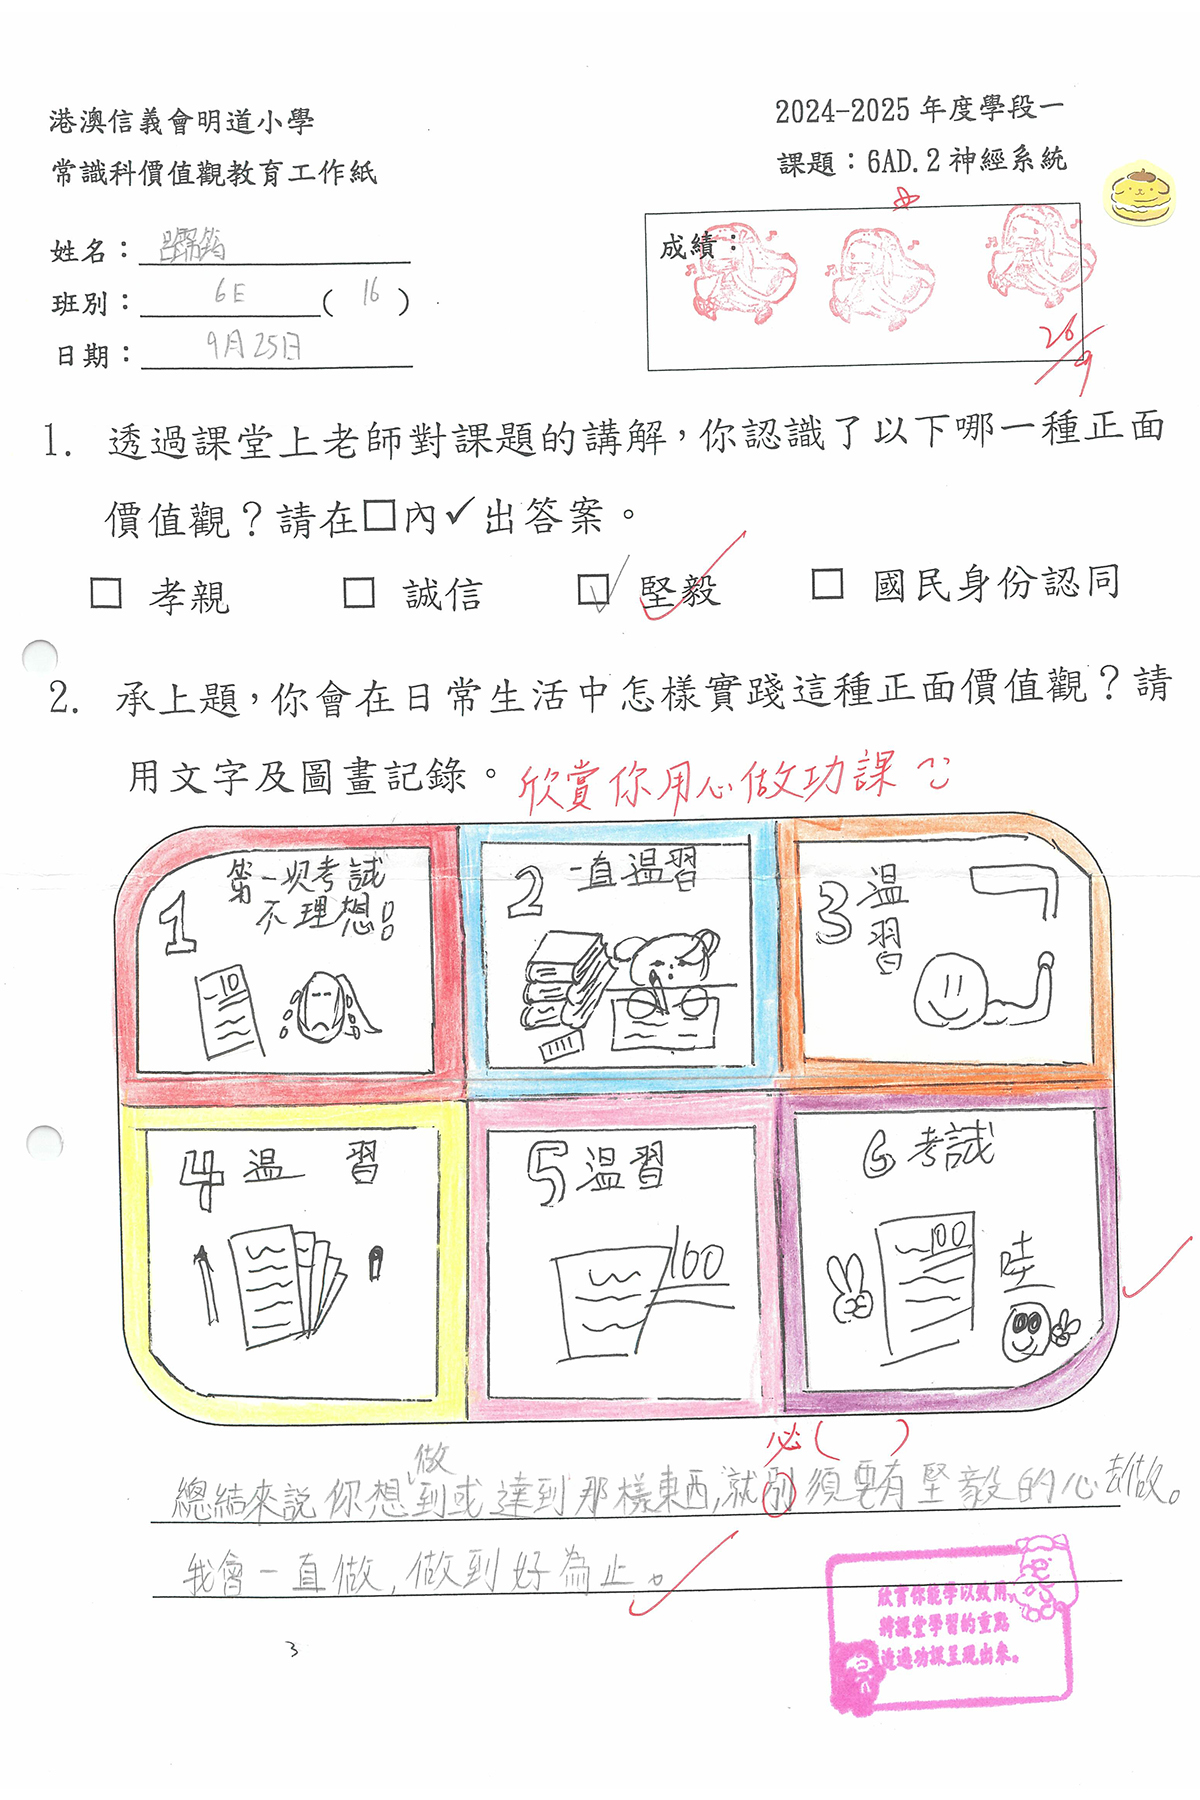 港澳信義會明道小學
2024-2025 年度學段一
常識科價值觀教育工作紙
課題：6AD.2 神經系統
姓名：
成績：
班別： 6E ( 16 )
日期： 9月25日
26/9
1. 透過課堂上老師對課題的講解，你認識了以下哪一種正面
價值觀？請在□內✓出答案。
□ 孝親 □ 誠信 □ 堅毅 □ 國民身份認同
2. 承上題，你會在日常生活中怎樣實踐這種正面價值觀？請
用文字及圖畫記錄。
欣賞你用心做功課
1 第一次考試
不理想！
10
2 一直溫習
3 溫習
4 溫習
5 溫習
100
6 考試
100
哇
必( )
做
總結來說你想到或達到那樣東西，就須要有堅毅的心去做。
我會一直做，做到好為止。
欣賞你能學以致用，
將課堂學習的重點
透過功課呈現出來。
3